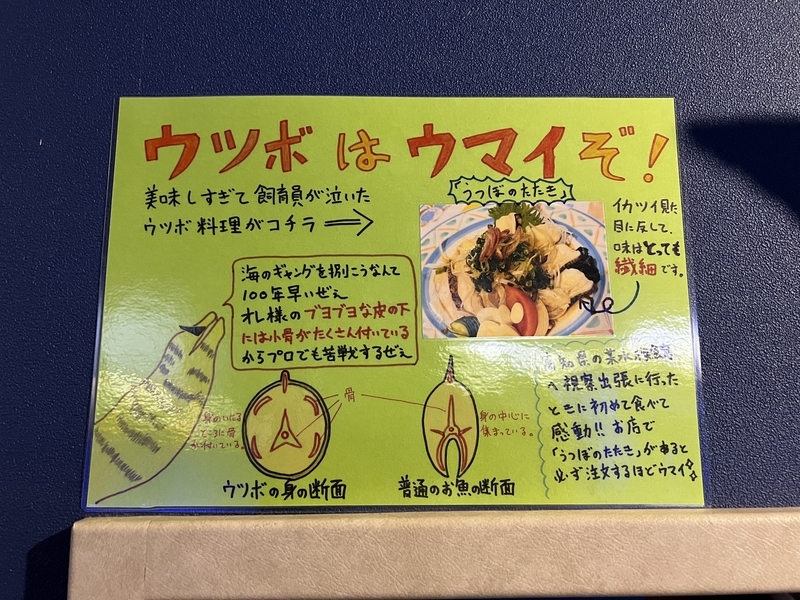 ウツボはウマイぞ!
美味しすぎて飼育員が泣いた
ウツボ料理がコチラ
「うつぼのたたき」
イカツイ見た
目に反して、
味はとっても
繊細です。
海のギャングを捌こうなんて
100年早いぜぇ
オレ様のブヨブヨな皮の下
には小骨がたくさん付いている
からプロでも苦戦するぜぇ
身のいたる
ところに骨
が付いている。
骨
身の中心に
集まっている。
ウツボの身の断面
普通のお魚の断面
高知県の
へ視察出張に行った
ときに初めて食べて
感動!!お店で
「うつぼのたたき」があると
必ず注文するほどウマイ